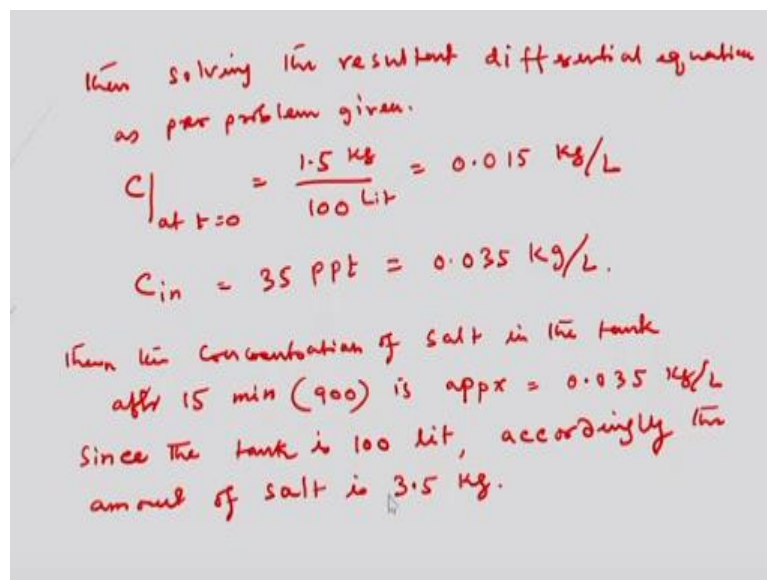 then solving the resultant differential equation
as per problem given.
C|at t=0 = 1.5 kg / 100 Lit = 0.015 kg/L
Cin = 35 ppt = 0.035 kg/L.
Then the concentration of salt in the tank
after 15 min (900) is appx = 0.035 kg/L
Since the tank is 100 lit, accordingly the
amount of salt is 3.5 kg.